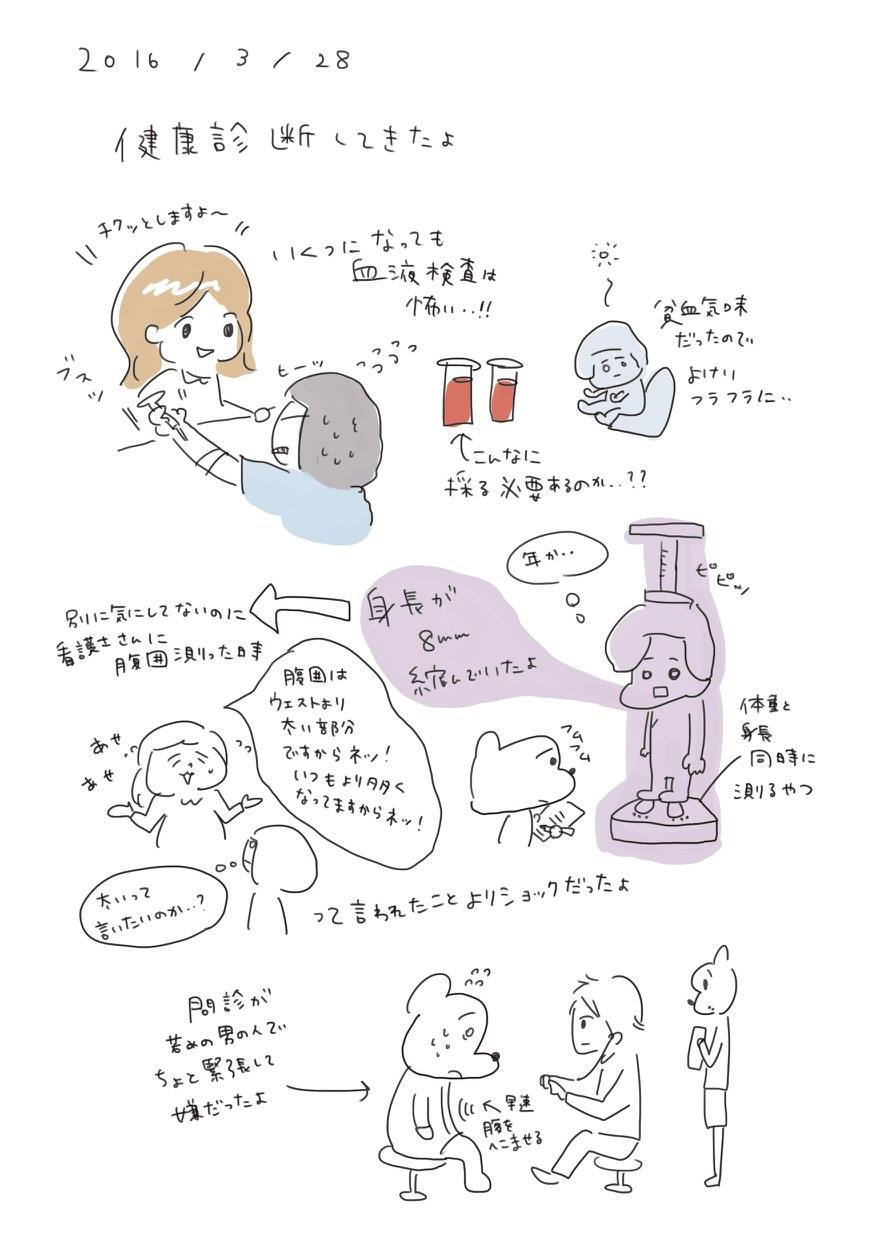 2016/3/28
健康診断してきたよ
チクッとしますよ〜
いくつになっても
血液検査は
怖い..!!
ブスッ
ヒーッ
貧血気味
だったので
よけい
フラフラに..
こんなに
採る必要あるのか..??
年か..
ピピッ
身長が
8mm
縮んでいたよ
別に気にしてないのに
看護士さんに
腹囲測った時
腹囲は
ウェストより
太い部分
ですからネッ!
いつもより多く
なってますからネッ!
あせ
あせ
フムフム
体重と
身長
同時に
測るやつ
太いって
言いたいのか..?
って言われたことよりショックだったよ
問診が
若めの男の人で
ちょと緊張して
嫌だったよ
早速
腹を
へこませる